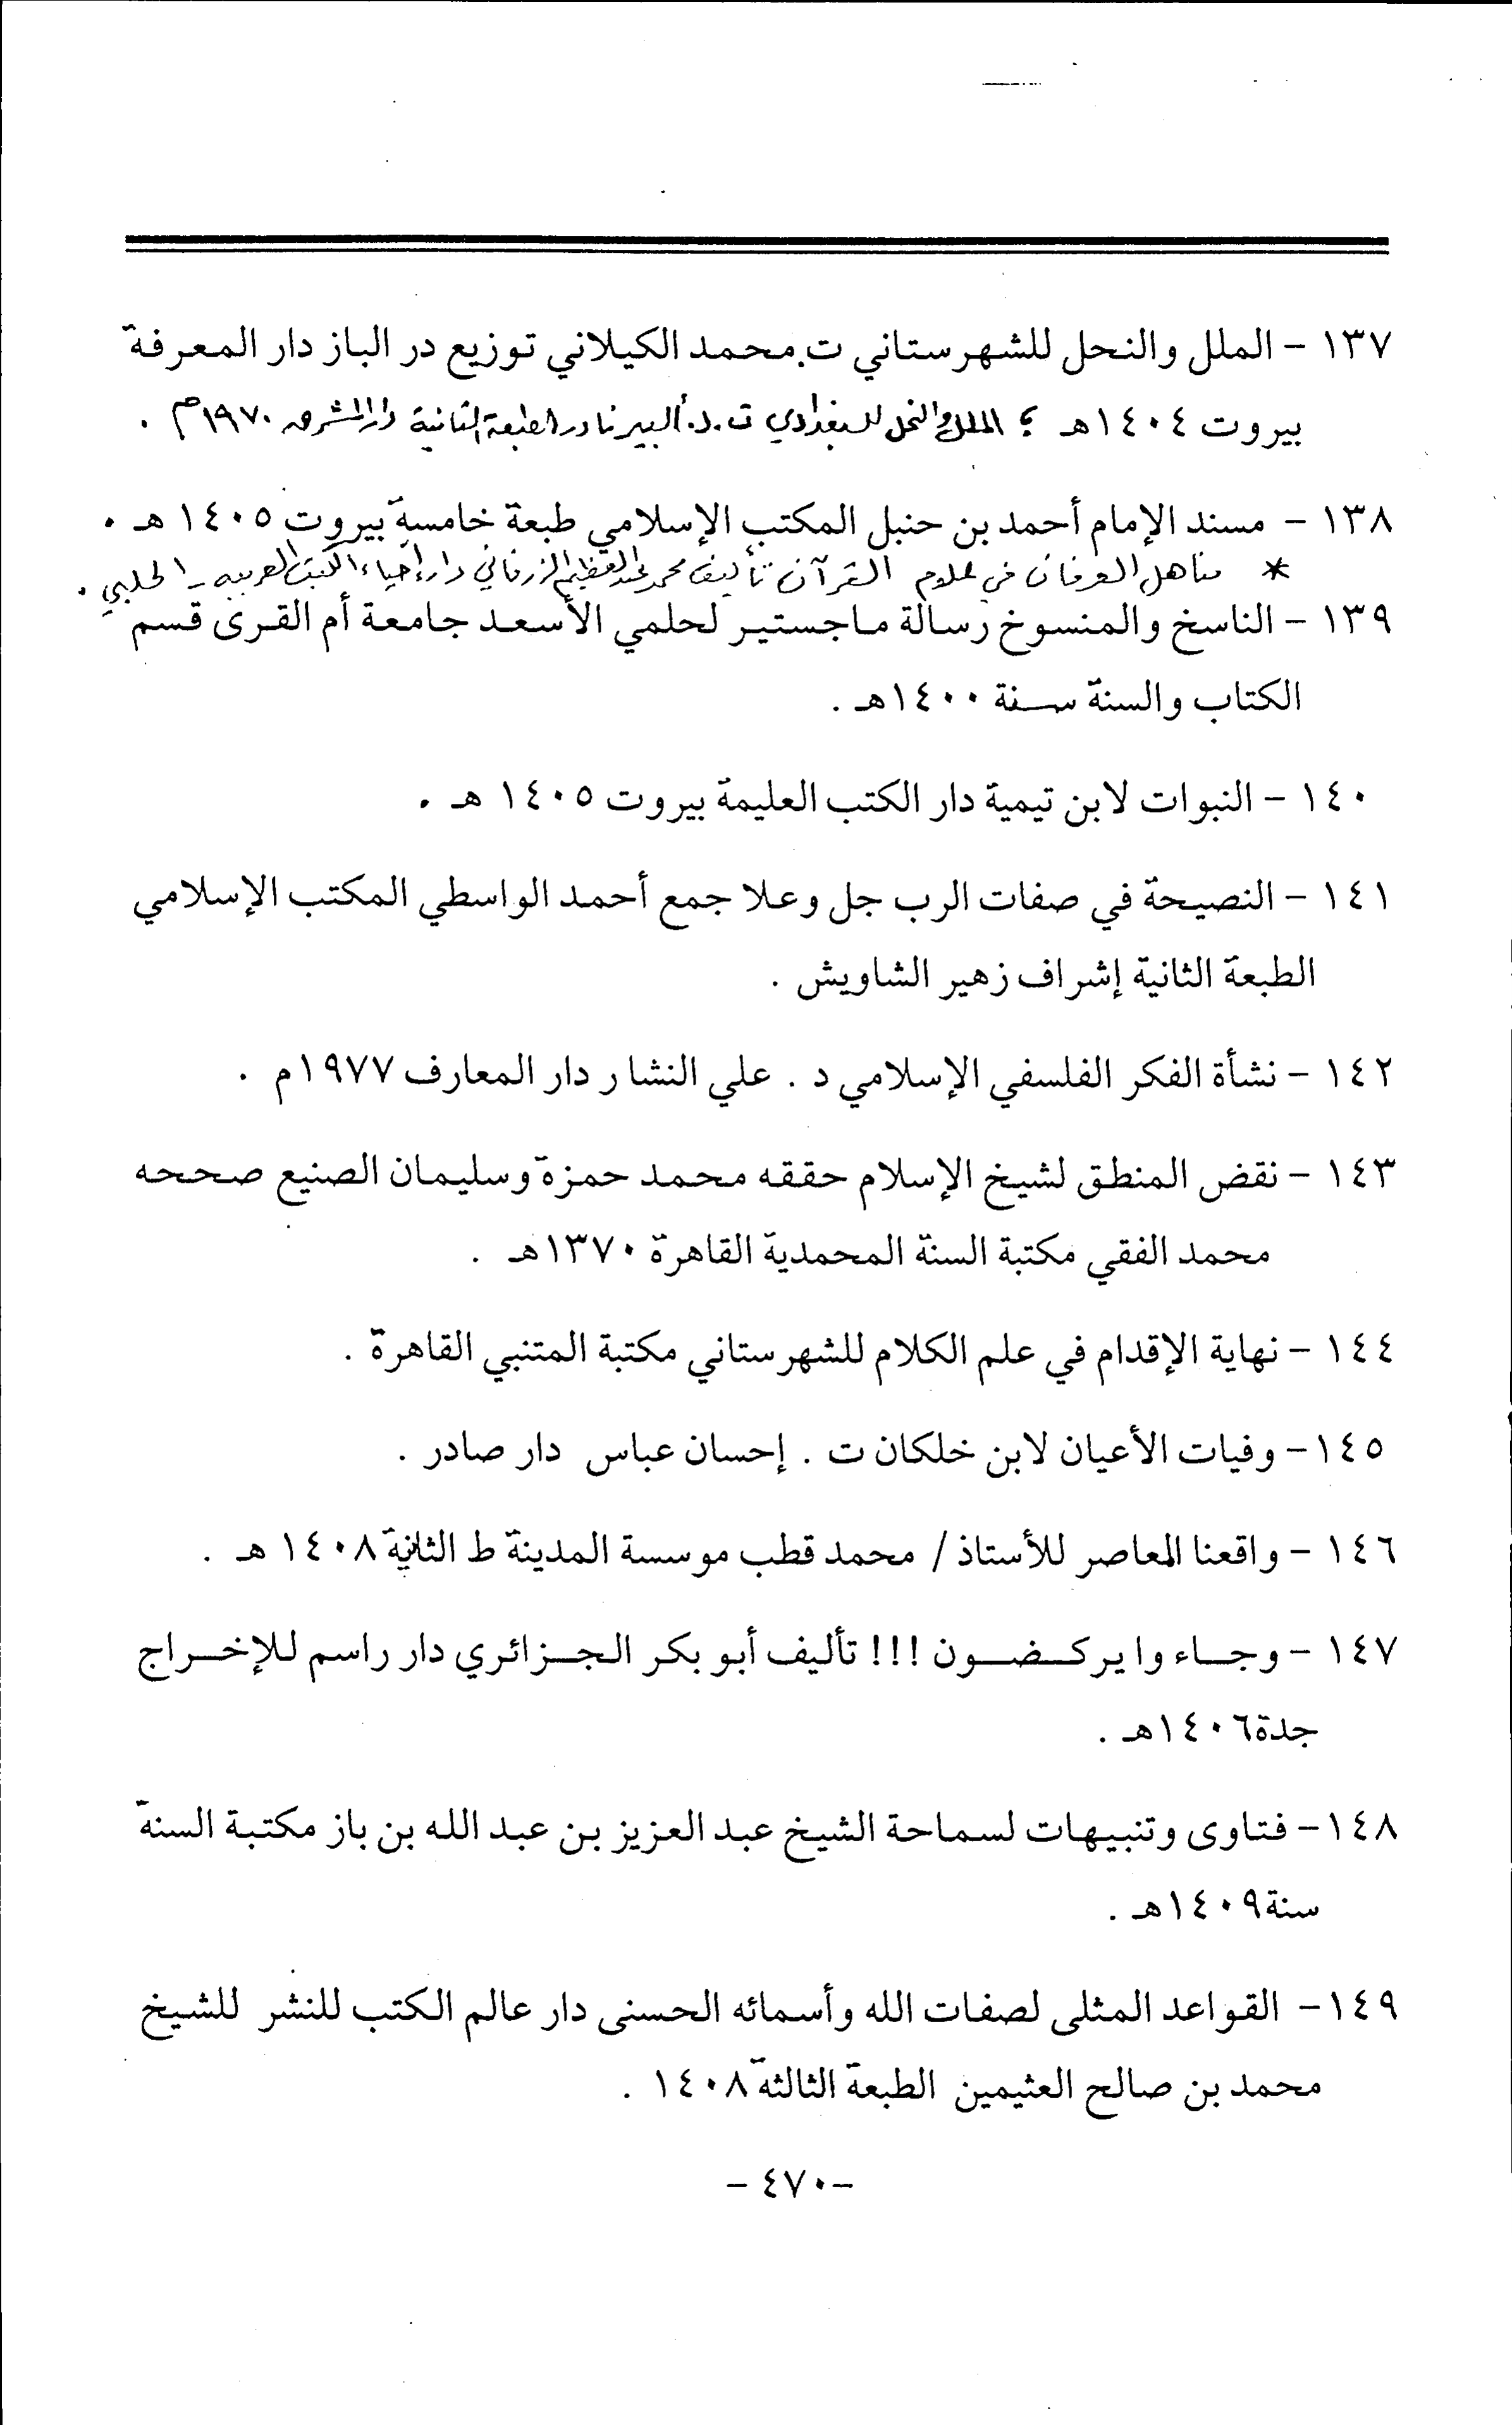 ١٣٧ - الملل والنحل للشهرستاني ت. محمد الكيلاني توزيع در الباز دار المعرفة
بيروت ١٤٠٤هـ ؛ الملل والنحل للبغدادي ت . د. ألبير نادر الطبعة الثانية دار المشرق ١٩٧٠م .
١٣٨ - مسند الإمام أحمد بن حنبل المكتب الإسلامي طبعة خامسة بيروت ١٤٠٥ هـ .
* مناهل العرفان في علوم القرآن تأليف محمد عبد العظيم الزرقاني دار إحياء الكتب العربيه - الحلبي .
١٣٩ - الناسخ والمنسوخ رسالة ماجستير لحلمي الأسعد جامعة أم القرى قسم
الكتاب والسنة سنة ١٤٠٠هـ .
١٤٠ - النبوات لابن تيمية دار الكتب العليمة بيروت ١٤٠٥ هـ .
١٤١ - النصيحة في صفات الرب جل وعلا جمع أحمد الواسطي المكتب الإسلامي
الطبعة الثانية إشراف زهير الشاويش .
١٤٢ - نشأة الفكر الفلسفي الإسلامي د . علي النشار دار المعارف ١٩٧٧م .
١٤٣ - نقض المنطق لشيخ الإسلام حققه محمد حمزة وسليمان الصنيع صححه
محمد الفقي مكتبة السنة المحمدية القاهرة ١٣٧٠هـ .
١٤٤ - نهاية الإقدام في علم الكلام للشهرستاني مكتبة المتنبي القاهرة .
١٤٥ - وفيات الأعيان لابن خلكان ت . إحسان عباس دار صادر .
١٤٦ - واقعنا المعاصر للأستاذ / محمد قطب موسسة المدينة ط الثانية ١٤٠٨ هـ .
١٤٧ - وجاء وا يركضون !!! تأليف أبو بكر الجزائري دار راسم للإخراج
جدة ١٤٠٦هـ .
١٤٨ - فتاوى وتنبيهات لسماحة الشيخ عبد العزيز بن عبد الله بن باز مكتبة السنة
سنة ١٤٠٩هـ .
١٤٩ - القواعد المثلى لصفات الله وأسمائه الحسنى دار عالم الكتب للنشر للشيخ
محمد بن صالح العثيمين الطبعة الثالثة ١٤٠٨ .
- ٤٧٠ -